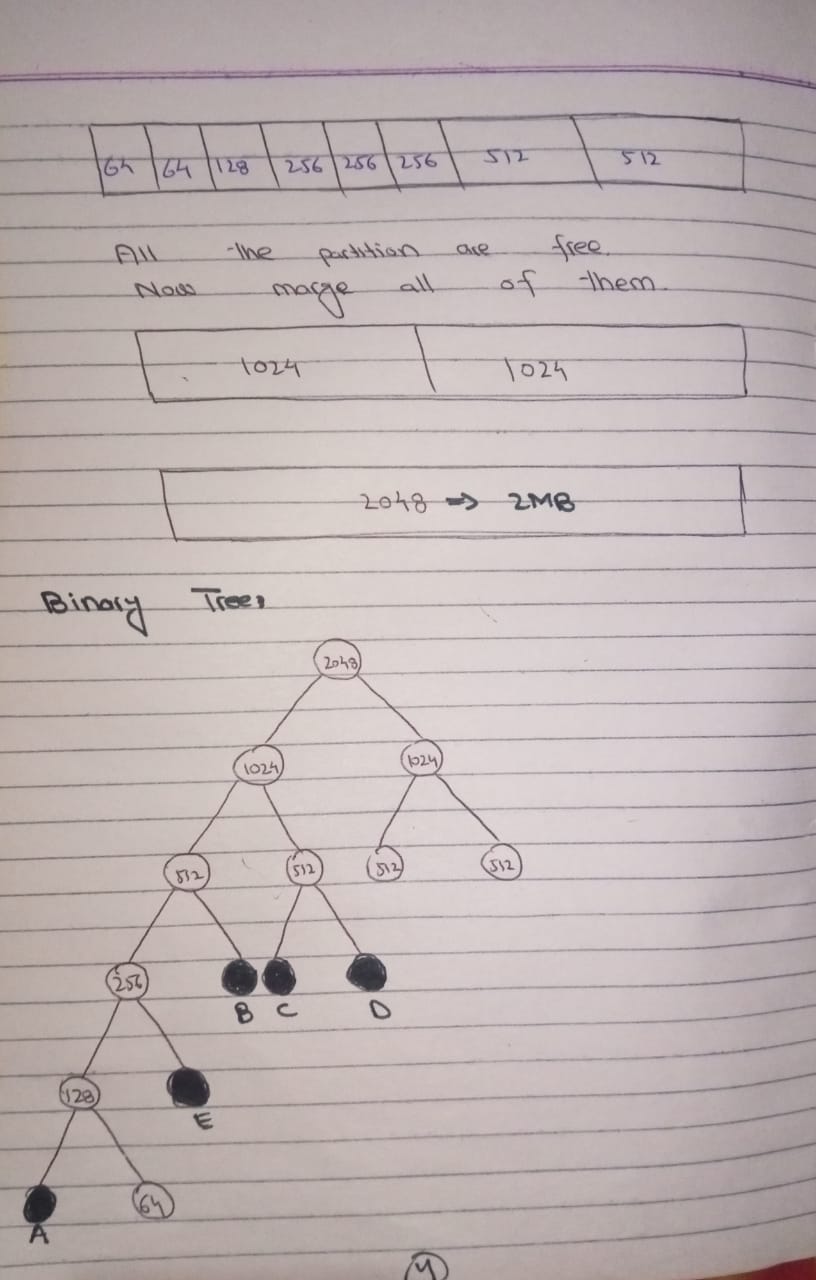 64 64 128 256 256 256 512 512
All the partition are free.
Now marge all of them.
1024 1024
2048 ⇒ 2MB
Binary Tree,
2048
1024 1024
512 512 512 512
256
B C D
128
E
64
A
4